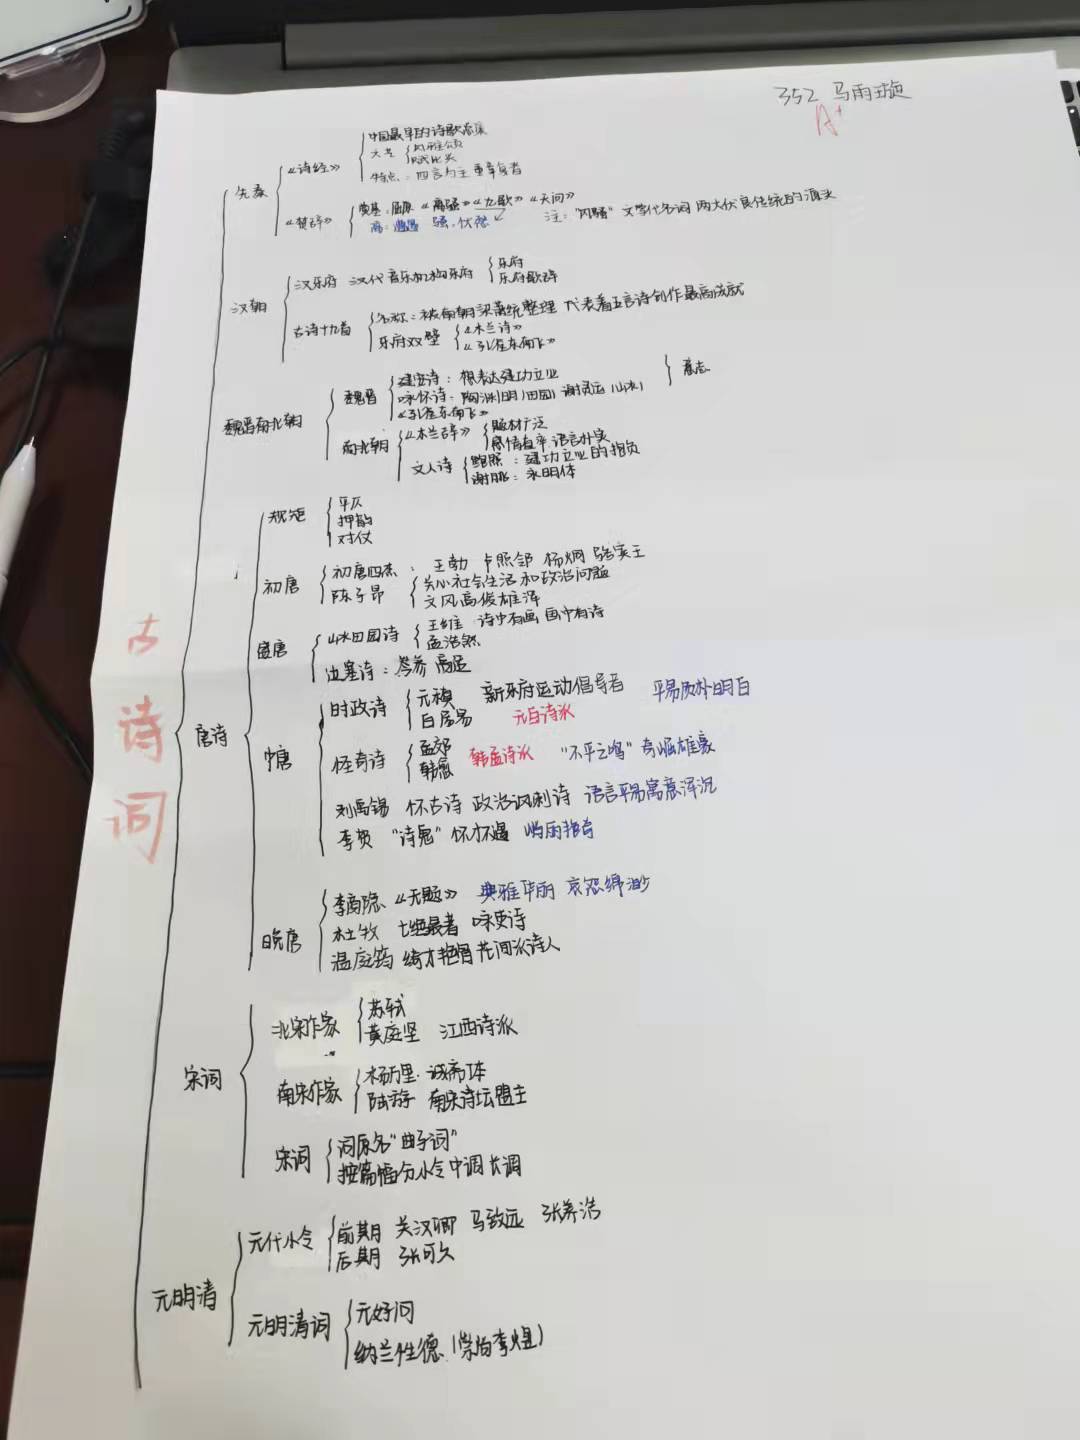 352 马雨璇
A+
古诗词
先秦
《诗经》
中国最早的诗歌总集
六艺
风雅颂
赋比兴
特点：四言为主 重章复沓
《楚辞》
奠基：屈原 《离骚》《九歌》《天问》
离：遭遇 骚：忧愁
注："风骚"文学代名词 两大优良传统的源头
汉朝
汉乐府 汉代音乐机构乐府
乐府
乐府歌辞
古诗十九首
名称：被南朝梁萧统整理 代表着五言诗创作最高成就
乐府双璧
《木兰诗》
《孔雀东南飞》
魏晋南北朝
魏晋
建安诗：想表达建功立业
咏怀诗：陶渊明（田园）谢灵运（山水）
《孔雀东南飞》
南北朝
《木兰辞》
题材广泛
感情直率 语言朴实
文人诗
鲍照：建功立业的抱负
谢朓：永明体
唐诗
规矩
平仄
押韵
对仗
初唐
初唐四杰：王勃 卢照邻 杨炯 骆宾王
陈子昂
关心社会生活和政治问题
文风高俊雄浑
盛唐
山水田园诗
王维 诗中有画 画中有诗
孟浩然
边塞诗：岑参 高适
中唐
时政诗
元稹 新乐府运动倡导者 平易质朴明白
白居易 元白诗派
怪奇诗
孟郊
韩愈 韩孟诗派 "不平之鸣" 奇崛雄豪
刘禹锡 怀古诗 政治讽刺诗 语言平易寓意浑沉
李贺 "诗鬼" 怀才不遇
晚唐
李商隐 《无题》 典雅华丽 哀怨绵渺
杜牧 七绝最著 咏史诗
温庭筠 绮才艳骨 花间派诗人
宋词
北宋作家
苏轼
黄庭坚 江西诗派
南宋作家
杨万里 诚斋体
陆游 南宋诗坛盟主
宋词
词原名"曲子词"
按篇幅分小令中调长调
元明清
元代小令
前期 关汉卿 马致远 张养浩
后期 张可久
元明清词
元好问
纳兰性德（崇尚李煜）